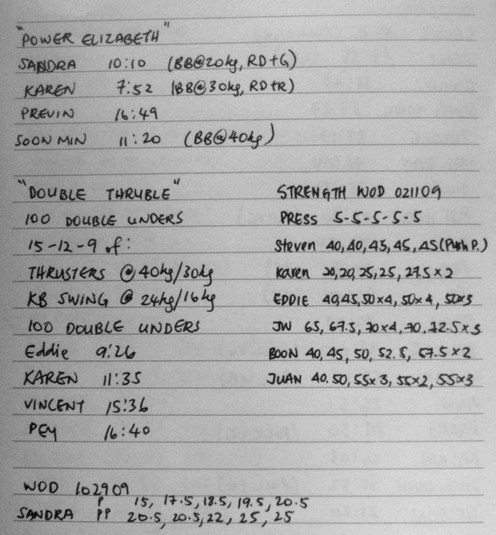 "POWER ELIZABETH"
SANDRA 10:10 (BB@20kg, RD+G)
KAREN 7:52 (BB@30kg, RD+R)
PREVIN 16:49
SOON MIN 11:20 (BB@40kg)
"DOUBLE THRUBLE"
100 DOUBLE UNDERS
15-12-9 of:
THRUSTERS @40kg/30kg
KB SWING @ 24kg/16kg
100 DOUBLE UNDERS
Eddie 9:26
KAREN 11:35
VINCENT 15:36
PEY 16:40
STRENGTH WOD 021109
PRESS 5-5-5-5-5
Steven 40, 40, 45, 45, 45 (Push P.)
Karen 20, 20, 25, 25, 27.5 x 2
EDDIE 40, 45, 50x4, 50x4, 50x3
JW 65, 67.5, 70x4, 70, 72.5x3
BOON 40, 45, 50, 52.5, 57.5x2
JUAN 40. 50, 55x3, 55x2, 55x3
WOD 102909
P 15, 17.5, 18.5, 19.5, 20.5
SANDRA PP 20.5, 20.5, 22, 25, 25